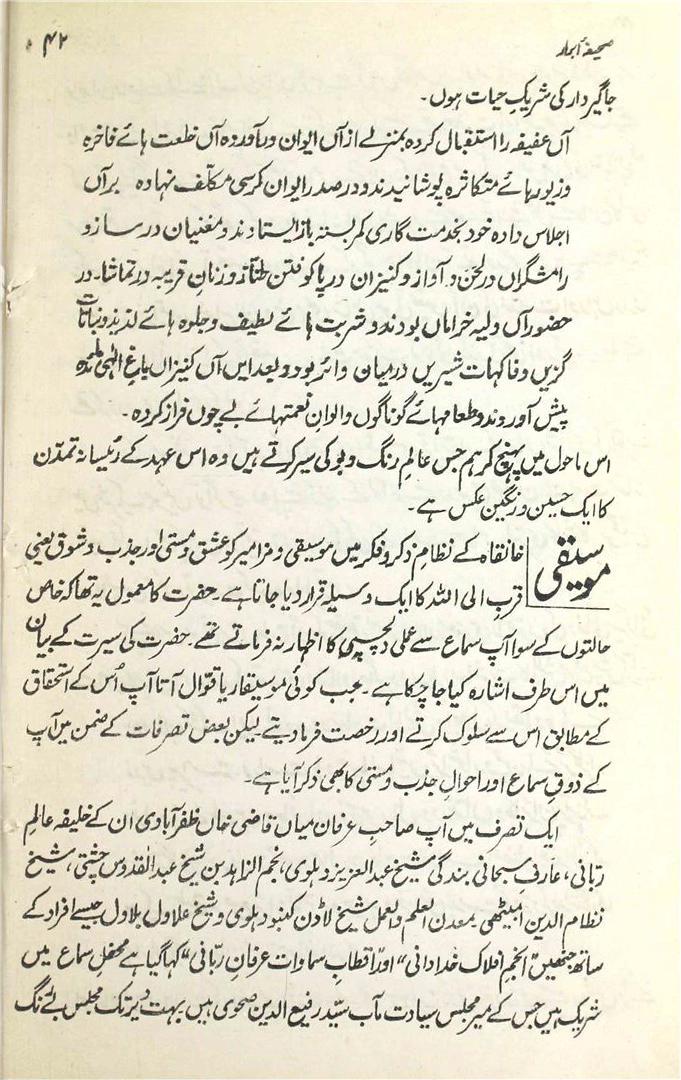 صحیفۂ ابرار
۴۲
جاگیردار کی شریکِ حیات ہوں۔
آں عفیفہ را استقبال کردہ بمنزلے ازآں ایوان درآوردہ آں خلعت ہائے فاخرہ
وزیورہائے متکاثرہ پوشانیدند و درصدر ایوان کرسی مکلّف نہادہ برآں
اجلاس دادہ خود بخدمت گاری کمر بستہ باز ایستادند و مغنیان در ساز و
رامشگراں در لحن و آواز و کنیزان در پا کوفتن طنّاز و زنانِ قریبہ در تماشا۔ در
حضور آں ولیہ خراماں بودند و شربت ہائے لطیف و جلوہ ہائے لذیذ و نباتات
گزیں و فاکہات شیریں درمیان دائر بود و بعد ایں آں کنیزاں باغِ الٰہی
پیش آوردند و طعامہائے گوناگوں و الوانِ نعمتہائے بے چوں فراز کردہ۔
اس ماحول میں پہنچ کر ہم جس عالمِ رنگ و بو کی سیر کرتے ہیں وہ اس عہد کے رئیسانہ تمدّن
کا ایک حسین و رنگین عکس ہے۔
موسیقی
خانقاہ کے نظامِ ذکر و فکر میں موسیقی و مزامیر کو عشق و مستی اور جذب و شوق یعنی
قربِ الی اللہ کا ایک وسیلہ قرار دیا جاتا ہے۔ حضرت کا معمول یہ تھا کہ خاص
حالتوں کے سوا آپ سماع سے عملی دلچسپی کا اظہار نہ فرماتے تھے۔ حضرت کی سیرت کے بیان
میں اس طرف اشارہ کیا جا چکا ہے۔ جب کوئی موسیقار یا قوّال آتا آپ اُس کے استحقاق
کے مطابق اس سے سلوک کرتے اور رخصت فرما دیتے۔ لیکن بعض تصرفات کے ضمن میں آپ
کے ذوقِ سماع اور احوالِ جذب و مستی کا بھی ذکر آیا ہے۔
ایک تصرف میں آپ صاحبِ عرفان میاں قاضی خاں ظفرآبادی ان کے خلیفہ عالمِ
ربّانی، عارفِ سبحانی بندگی شیخ عبدالعزیز دہلوی، نجم الزاہدین شیخ عبدالقدّوس چشتی، شیخ
نظام الدین امیٹھی۔ معدن العلم والعمل شیخ لاڈن کنبو دہلوی و شیخ علاول بلاول جیسے افراد کے
ساتھ جنھیں "انجم افلاک خدادانی" اور "اقطابِ سماوات عرفانِ ربّانی" کہا گیا ہے محفلِ سماع میں
شریک ہیں جس کے میرِ مجلس سیادت مآب سیّد رفیع الدین صفوی ہیں بہت دیر تک مجلس بے رنگ